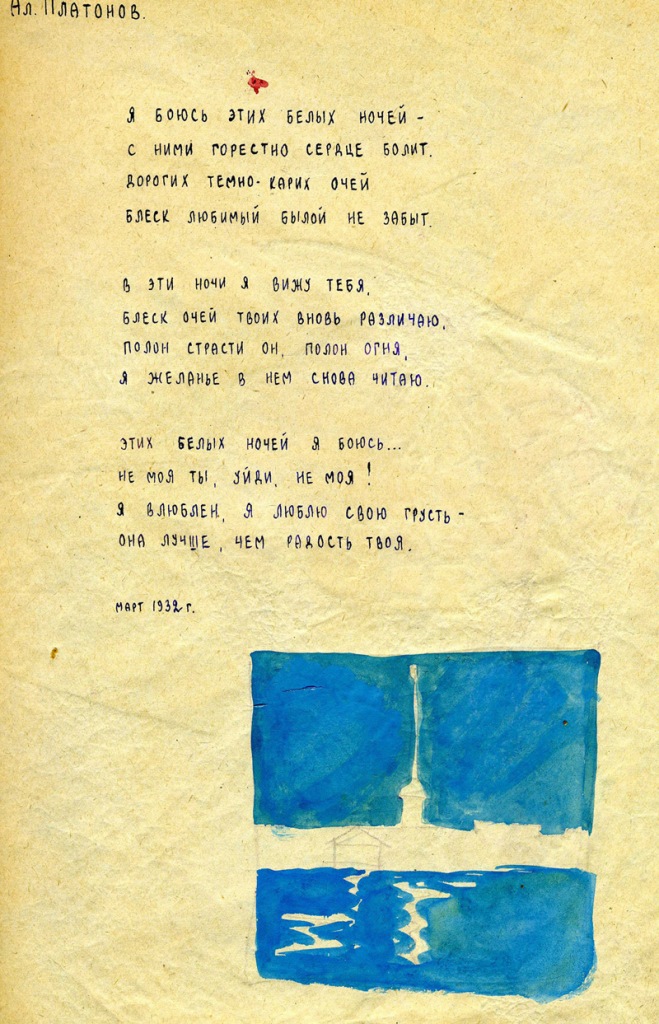 Ал. Платонов.
Я боюсь этих белых ночей -
с ними горестно сердце болит.
Дорогих темно-карих очей
блеск любимый былой не забыт.
В эти ночи я вижу тебя,
блеск очей твоих вновь различаю,
полон страсти он, полон огня,
я желанье в нем снова читаю.
Этих белых ночей я боюсь...
Не моя ты, уйди, не моя!
Я влюблен, я люблю свою грусть -
она лучше, чем радость твоя.
Март 1932 г.